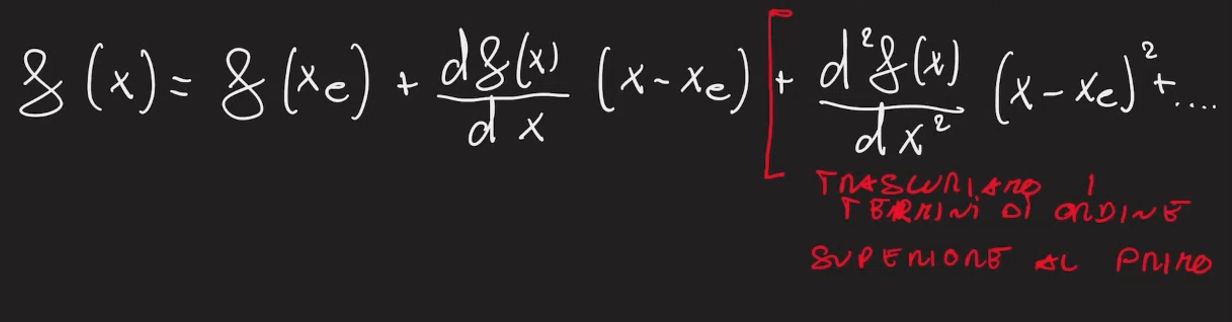 f(x) = f(xe) + df(x)/dx (x-xe) + d²f(x)/dx² (x-xe)² + ....
TRASCURIAMO I
TERMINI DI ORDINE
SUPERIORE AL PRIMO